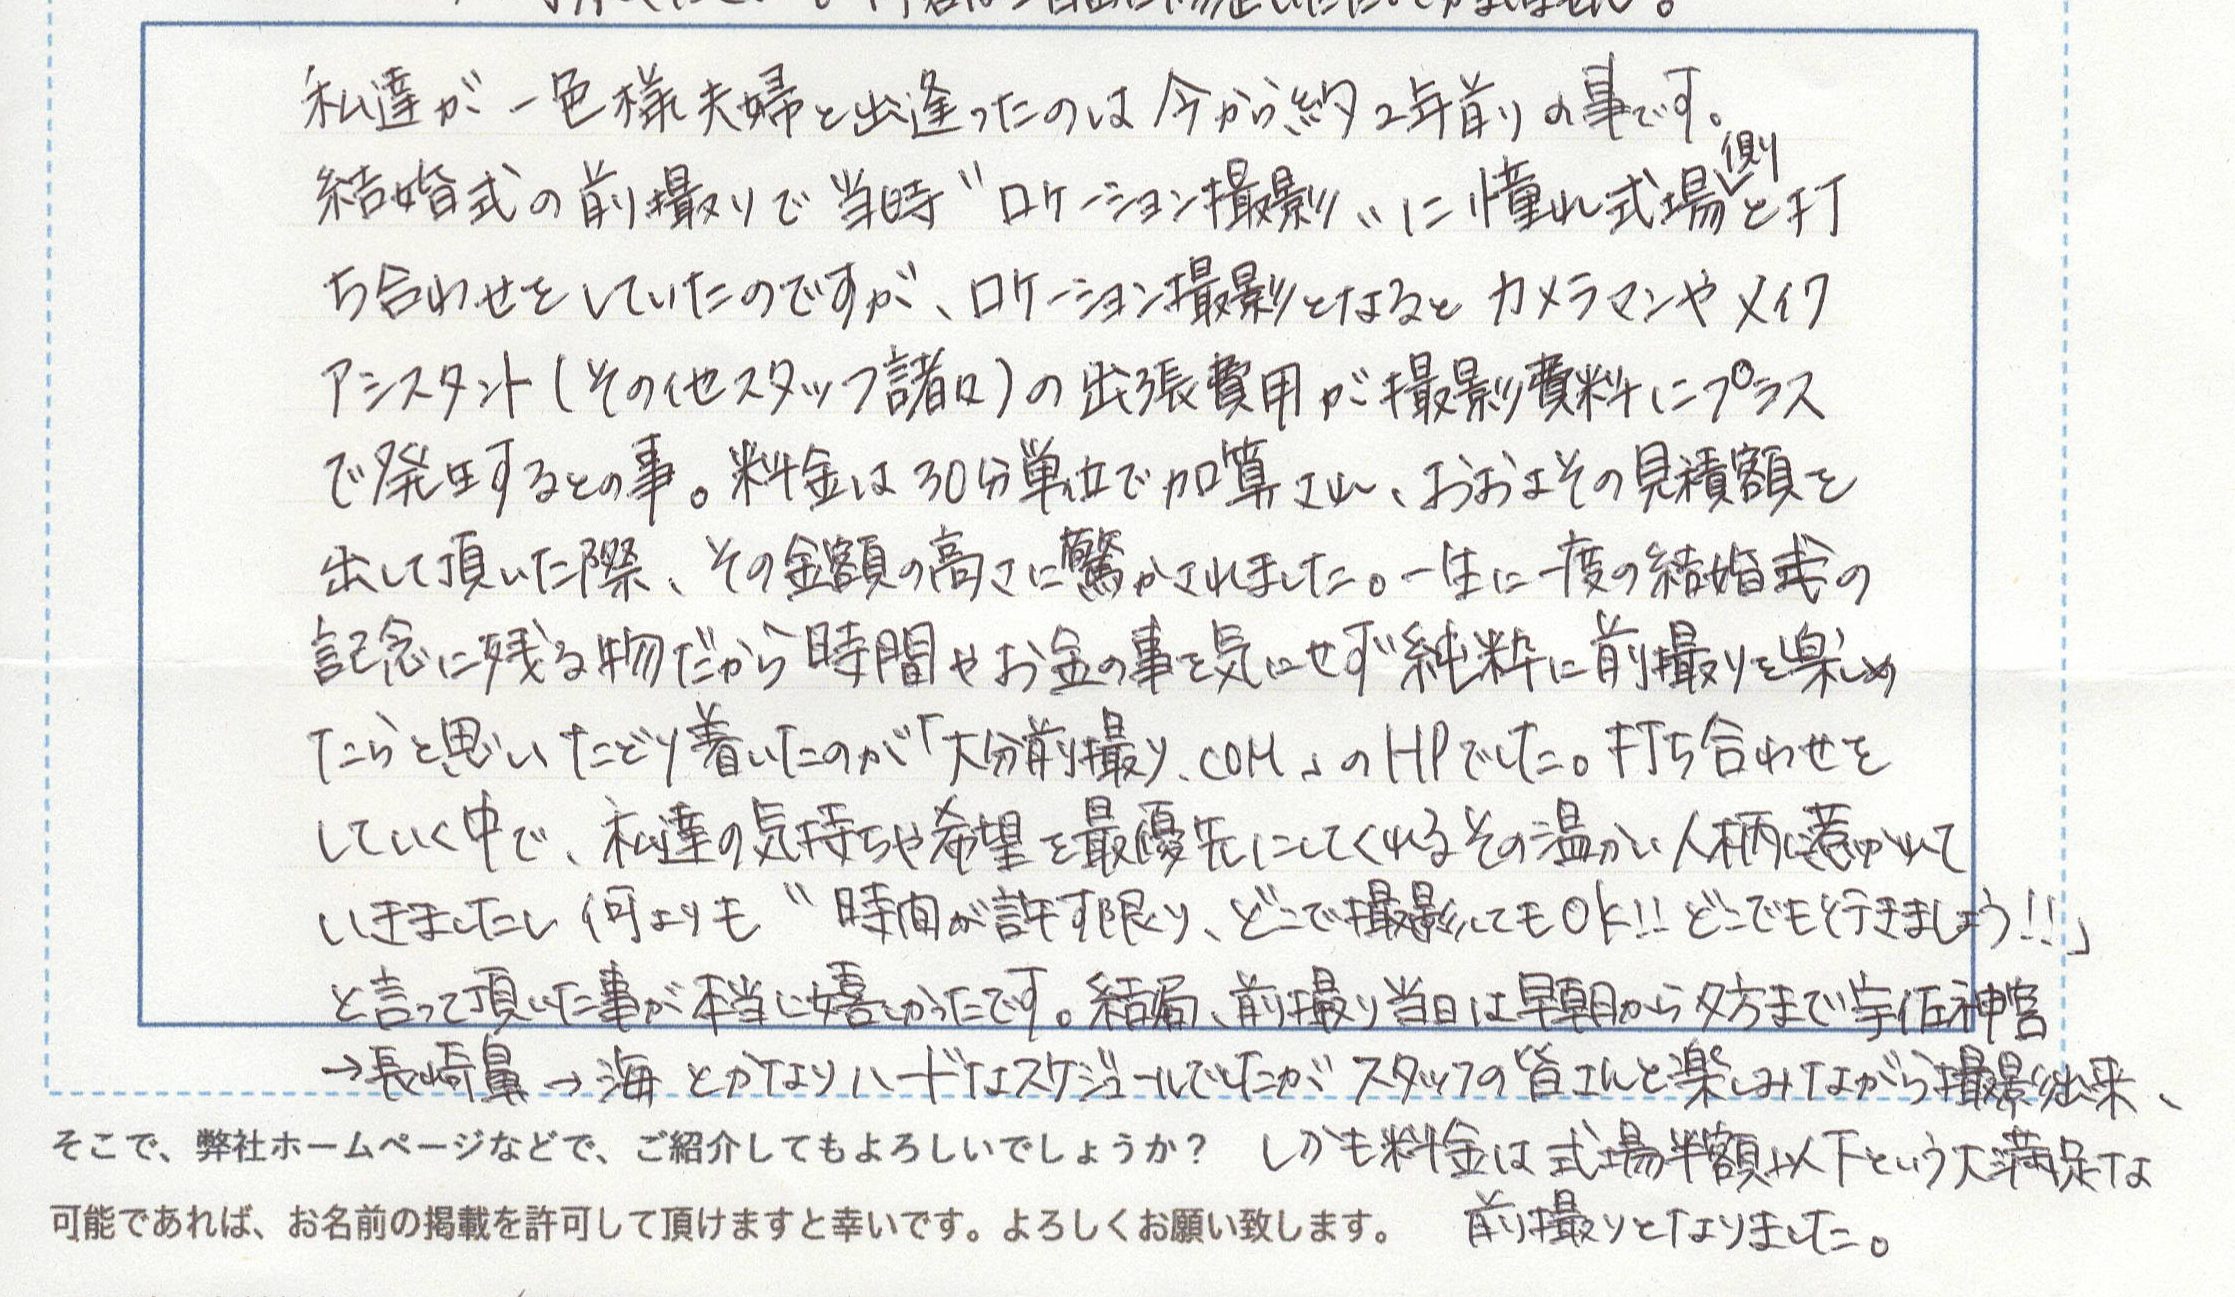 私達が一色様夫婦と出逢ったのは今から約2年前の事です。
結婚式の前撮りで当時〝ロケーション撮影〟に憧れ式場側と打
ち合わせをしていたのですが、ロケーション撮影となるとカメラマンやメイク
アシスタント(その他スタッフ諸々)の出張費用が撮影費料にプラス
で発生するとの事。料金は30分単位で加算され、おおよその見積額を
出して頂いた際、その金額の高さに驚かされました。一生に一度の結婚式の
記念に残る物だから時間やお金の事を気にせず純粋に前撮りを楽しめ
たらと思いたどり着いたのが「大分前撮り.COM」のHPでした。打ち合わせを
していく中で、私達の気持ちや希望を最優先にしてくれるその温かい人柄に惹かれて
いきましたし何よりも〝時間が許す限り、どこで撮影してもOK!!どこでも行きましょう!!」
と言って頂いた事が本当に嬉しかったです。結局、前撮り当日は早朝から夕方まで宇佐神宮
→長崎鼻→海とかなりハードなスケジュールでしたがスタッフの皆さんと楽しみながら撮影出来、
そこで、弊社ホームページなどで、ご紹介してもよろしいでしょうか? しかも料金は式場半額以下という大満足な
可能であれば、お名前の掲載を許可して頂けますと幸いです。よろしくお願い致します。 前撮りとなりました。